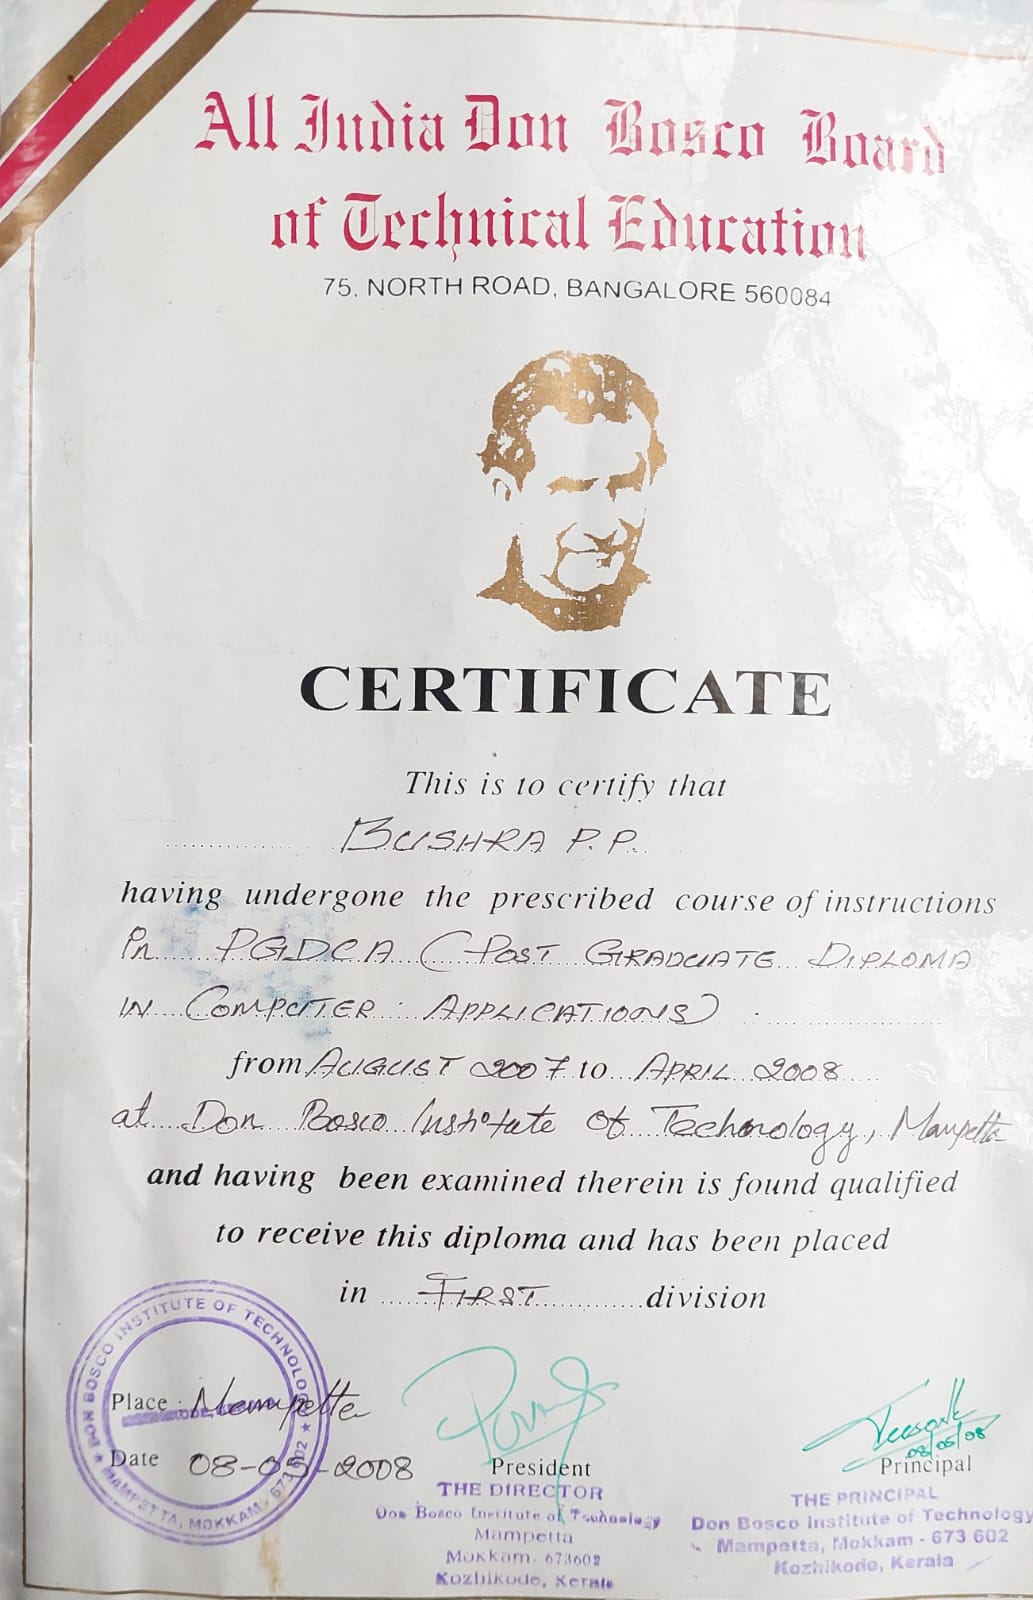 All India Don Bosco Board
of Technical Education
75, NORTH ROAD, BANGALORE 560084
CERTIFICATE
This is to certify that
BUSHRA P.P.
having undergone the prescribed course of instructions
in PGDCA (POST GRADUATE DIPLOMA
IN COMPUTER APPLICATIONS)
from AUGUST 2007 to APRIL 2008
at Don Bosco Institute Of Technology, Mampetta
and having been examined therein is found qualified
to receive this diploma and has been placed
in FIRST division
DON BOSCO INSTITUTE OF TECHNOLOGY
MAMPETTA, MOKKAM, 673 602
Place : Mampetta
Date 08-05-2008
President
THE DIRECTOR
Don Bosco Institute of Technology
Mampetta
Mokkam. 673602
Kozhikode, Kerala
08/05/08
Principal
THE PRINCIPAL
Don Bosco Institute of Technology
Mampetta, Mokkam - 673 602
Kozhikode, Kerala